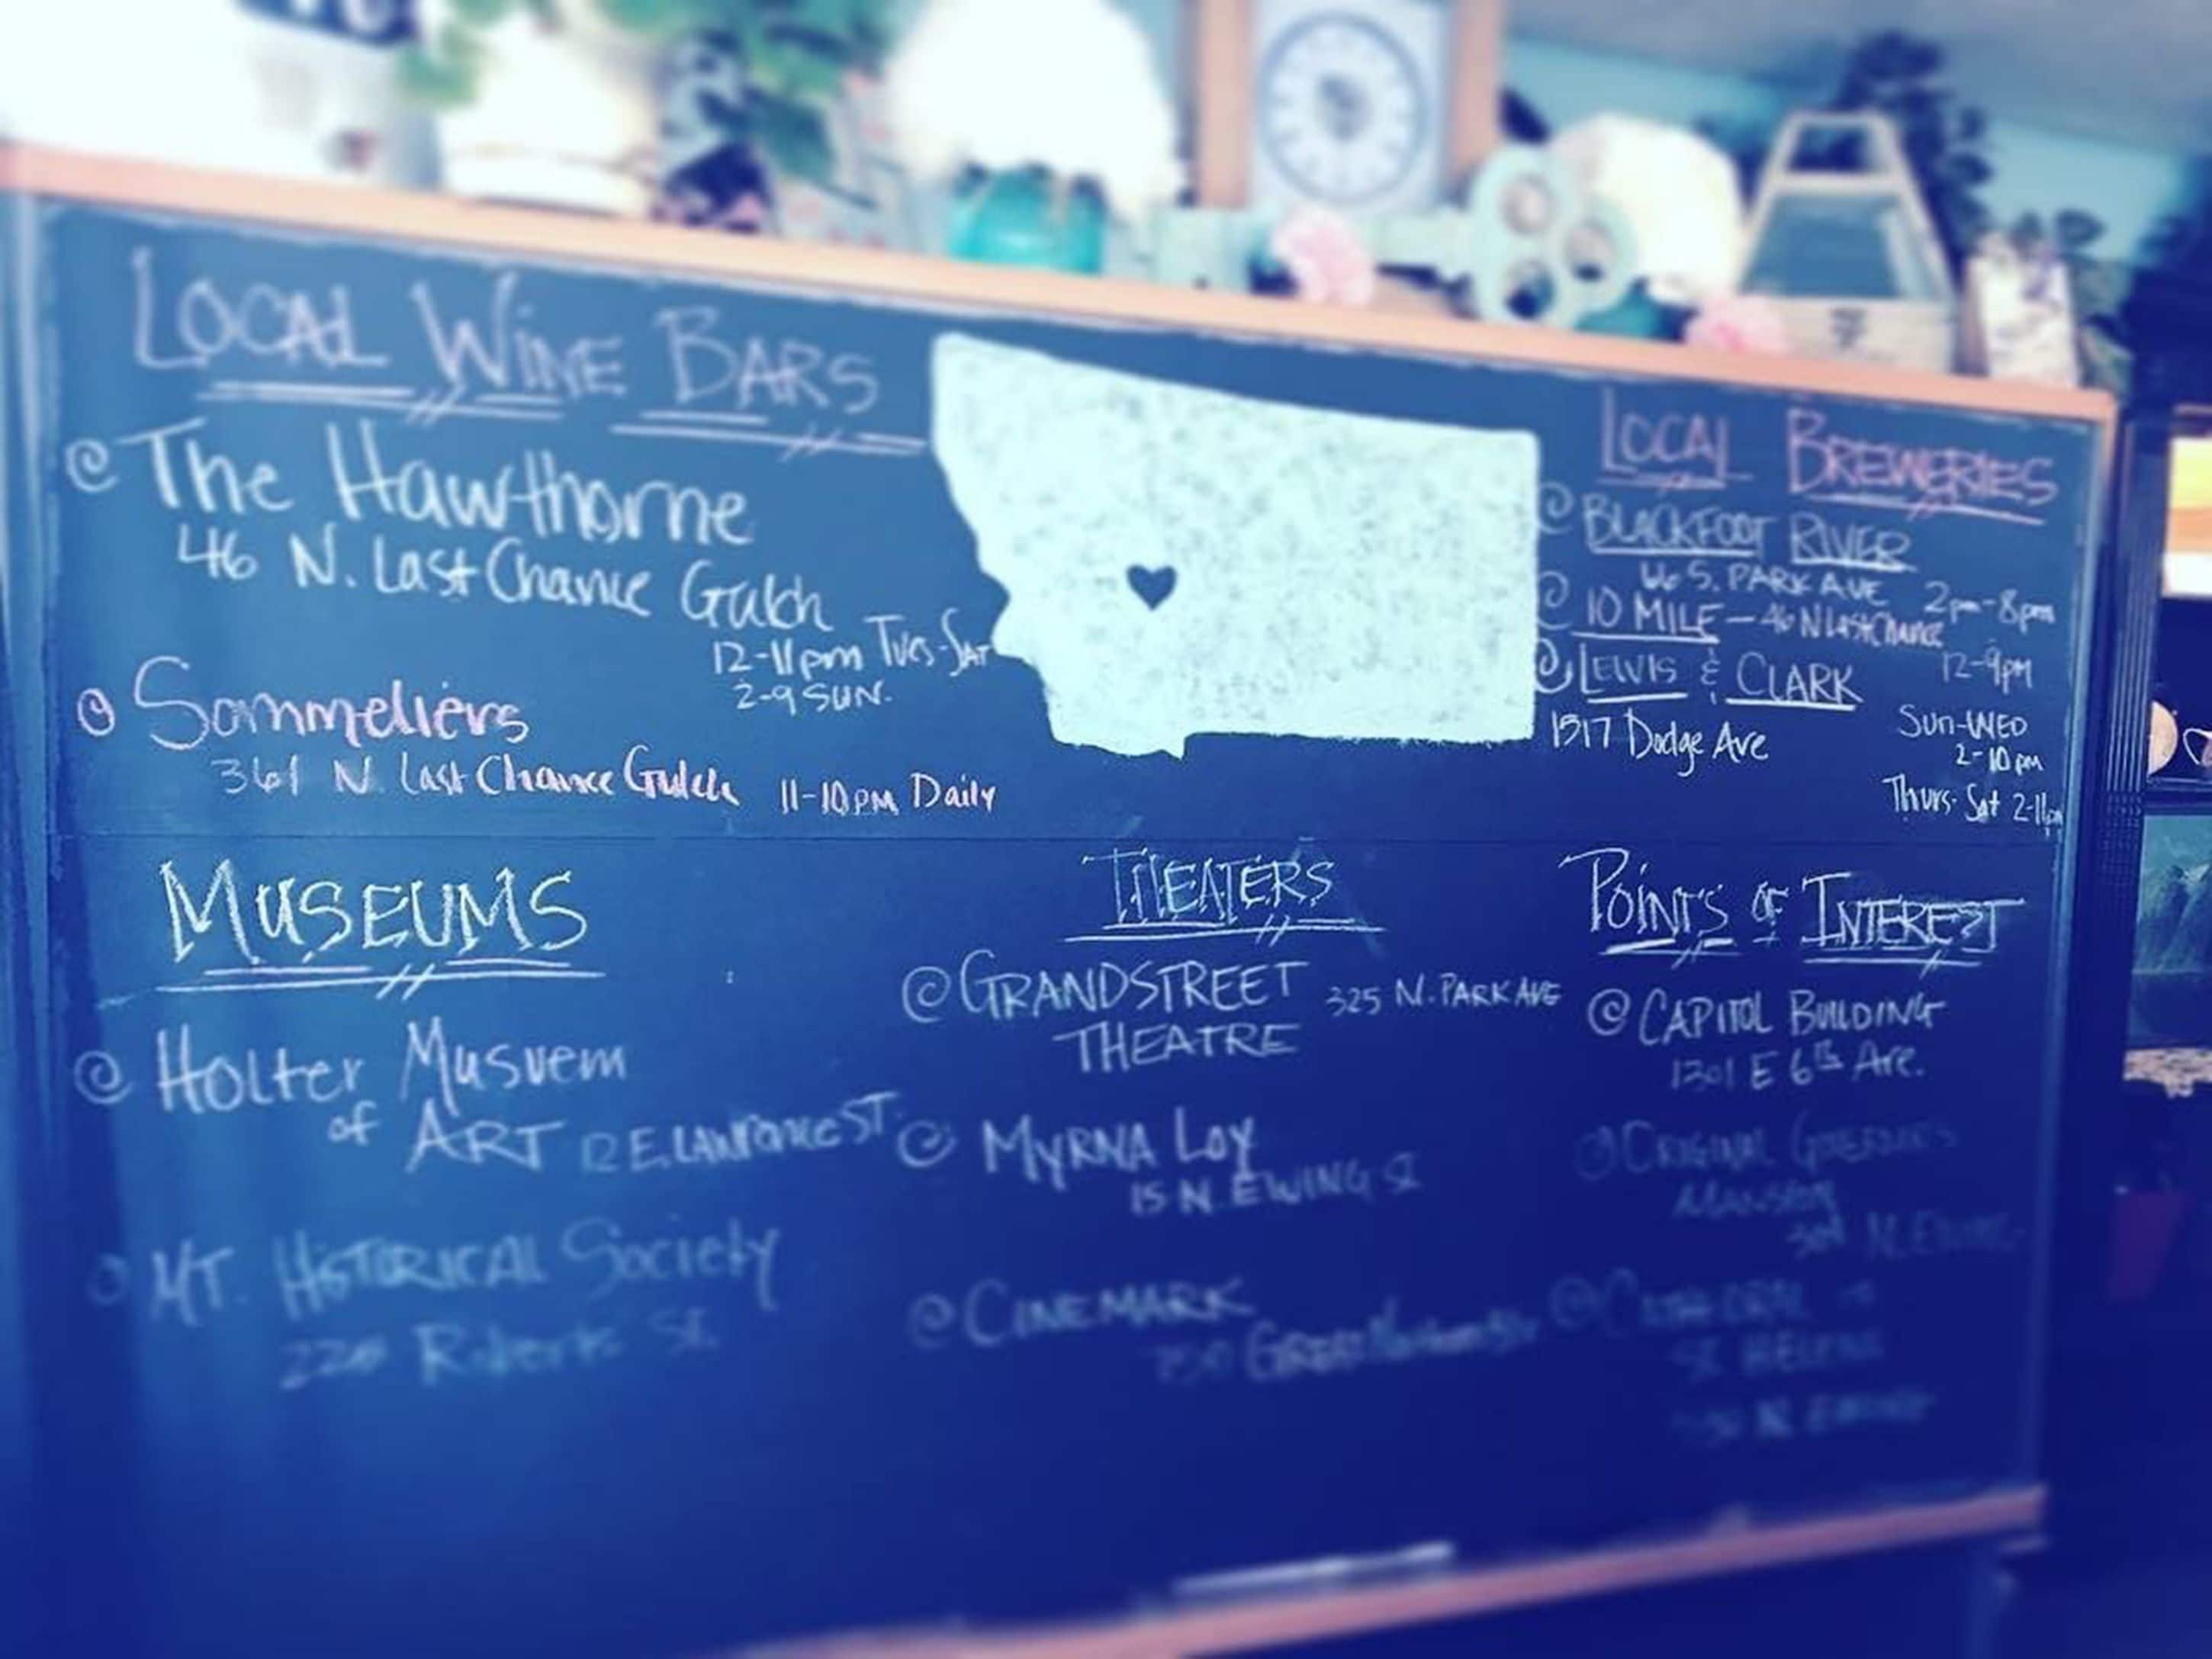 LOCAL WINE BARS
@ The Hawthorne
46 N. Last Chance Gulch
12-11pm Tues-SAT
2-9 SUN.
@ Sommeliers
361 N. Last Chance Gulch 11-10PM Daily
LOCAL BREWERIES
@ BLACKFOOT RIVER
66 S. PARK AVE 2pm-8pm
@ 10 MILE - 46 N Last Chance
12-9pm
@ LEWIS & CLARK
1517 Dodge Ave
Sun-WED
2-10pm
Thurs-Sat 2-11pm
MUSEUMS
@ Holter Musuem
of ART 12 E. LAWRENCE ST.
@ MT. HISTORICAL Society
Roberts St.
THEATERS
@ GRANDSTREET 325 N. PARK AVE
THEATRE
@ MYRNA LOY
15 N. EWING St
@ CINEMARK
GREAT Northern
POINTS OF INTEREST
@ CAPITOL BUILDING
1301 E 6th Ave.
@ ORIGINAL GOVERNORS
MANSION
304 N. EWING
@ CATHEDRAL
St. HELENA
N. EWING